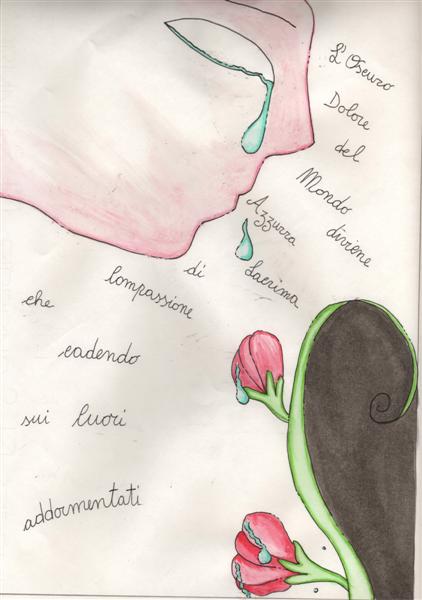 L'Oscuro
Dolore
del
Mondo diviene
Azzurra
Lacrima
di
Compassione
che
cadendo
sui Cuori
addormentati